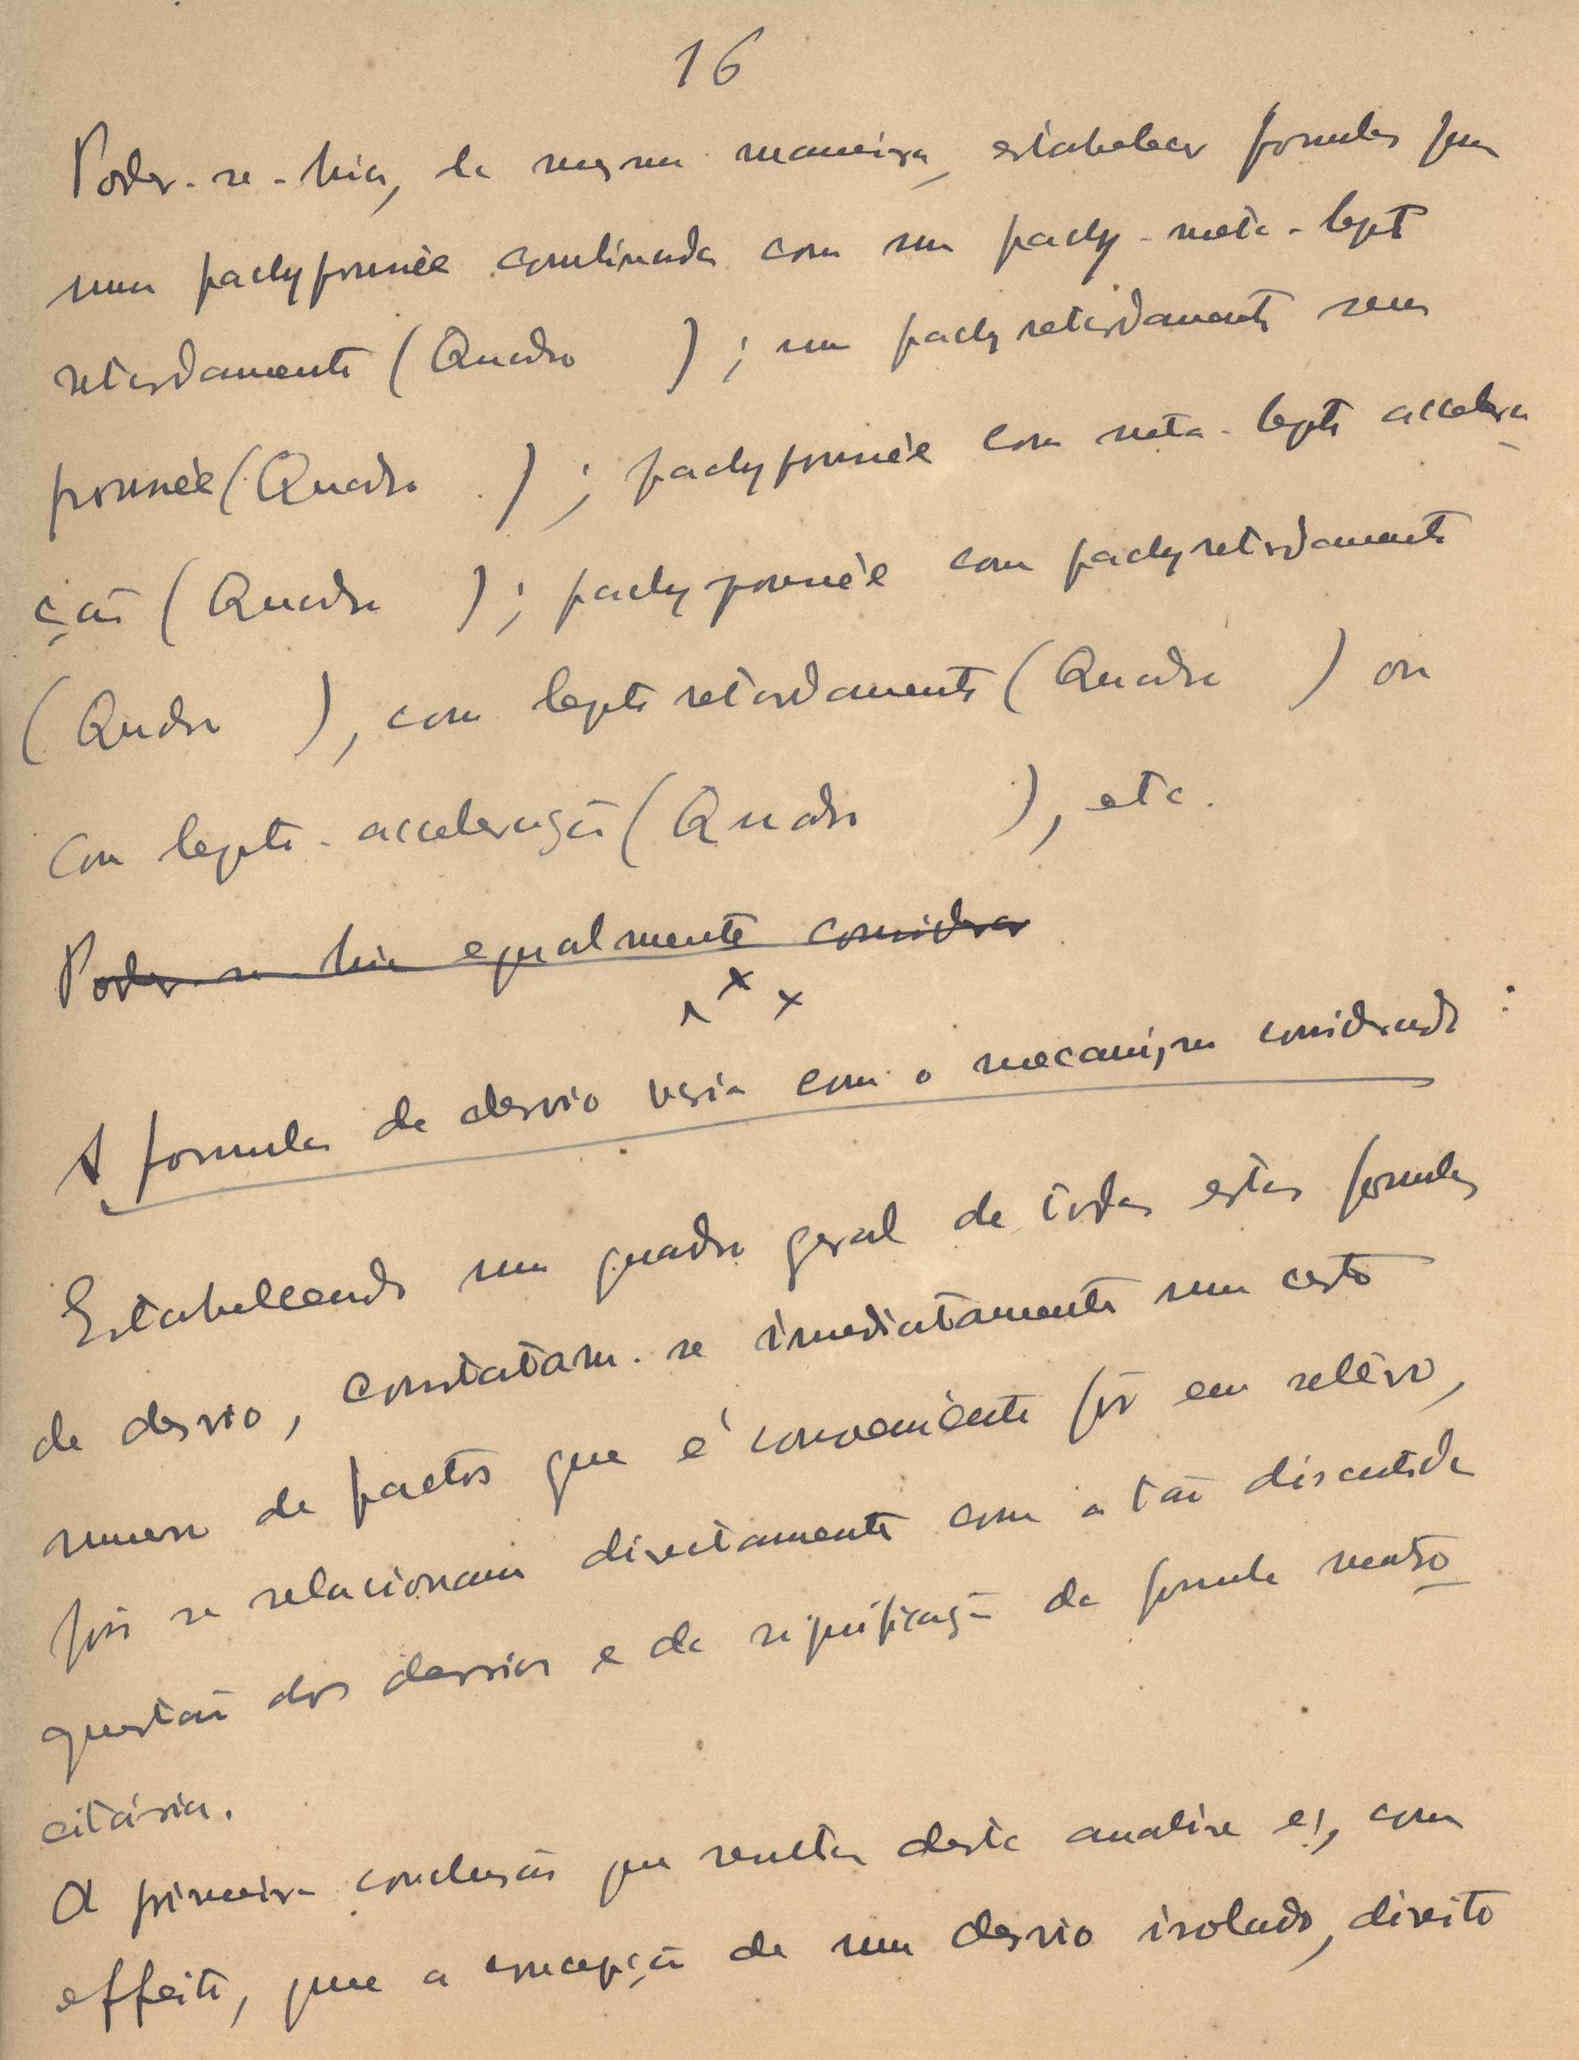 16
Poder-se-hia, de mesma maneira, estabelecer formulas para
uma pachypoussée combinada com um pachy-meta-lepto
retardamento (Quadro ) ; um pachyretardamento sem
poussée (Quadro ) ; pachypoussée com meta-lepto accelera
ção (Quadro ) ; pachypoussée com pachyretardamento
(Quadro ), com lepto retardamento (Quadro ) ou
com lepto-acceleração (Quadro ), etc.
Poder-se-hia egualmente considerar
x x x
A formula de desvio varia com o mecanismo considerado :
Estabellecendo um quadro geral de todas estas formulas
de desvio, constatam-se immediatamente um certo
numero de factos que é conveniente pôr em relêvo,
pois se relacionam directamente com a tão discutida
questão dos desvios e da significação da formula neutro
citária.
A primeira conclusão que resulta desta analise é, com
effeito, que a concepção de um desvio isolado, direito